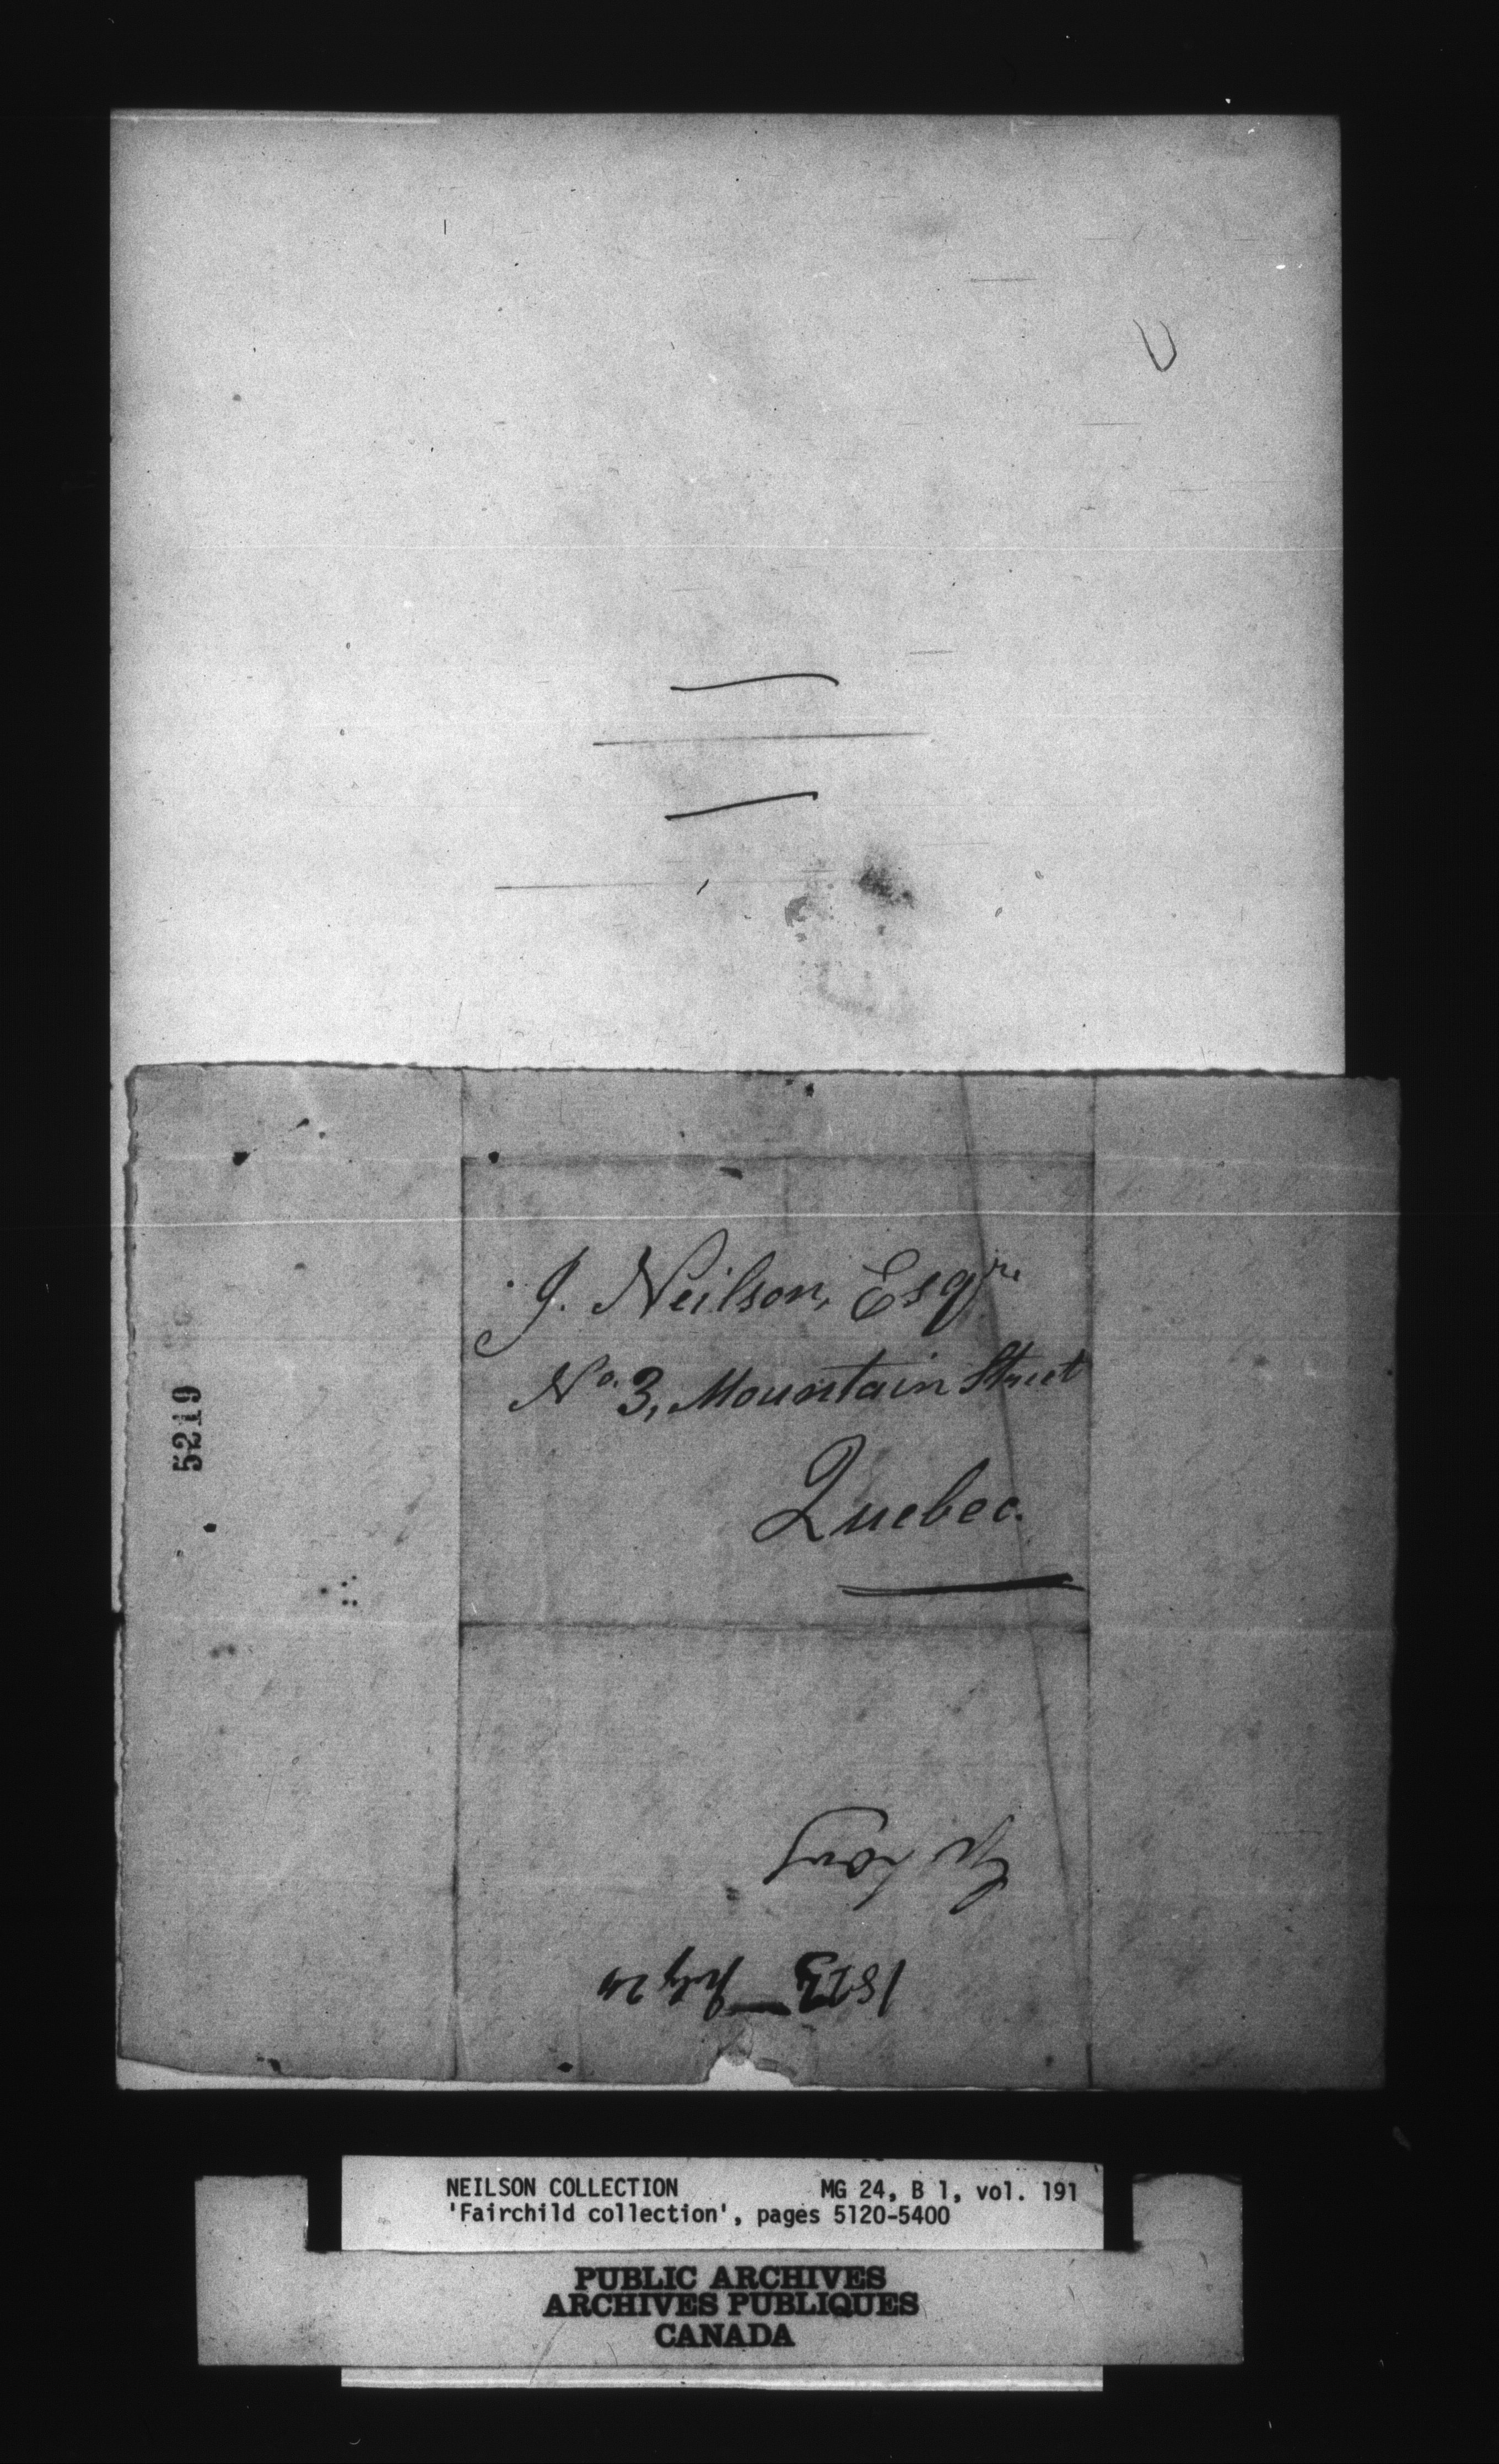 J. Neilson, Esqre
No. 3, Mountain Street
Quebec.
5219
1813 July 24
NEILSON COLLECTION MG 24, B 1, vol. 191
'Fairchild collection', pages 5120-5400
PUBLIC ARCHIVES
ARCHIVES PUBLIQUES
CANADA